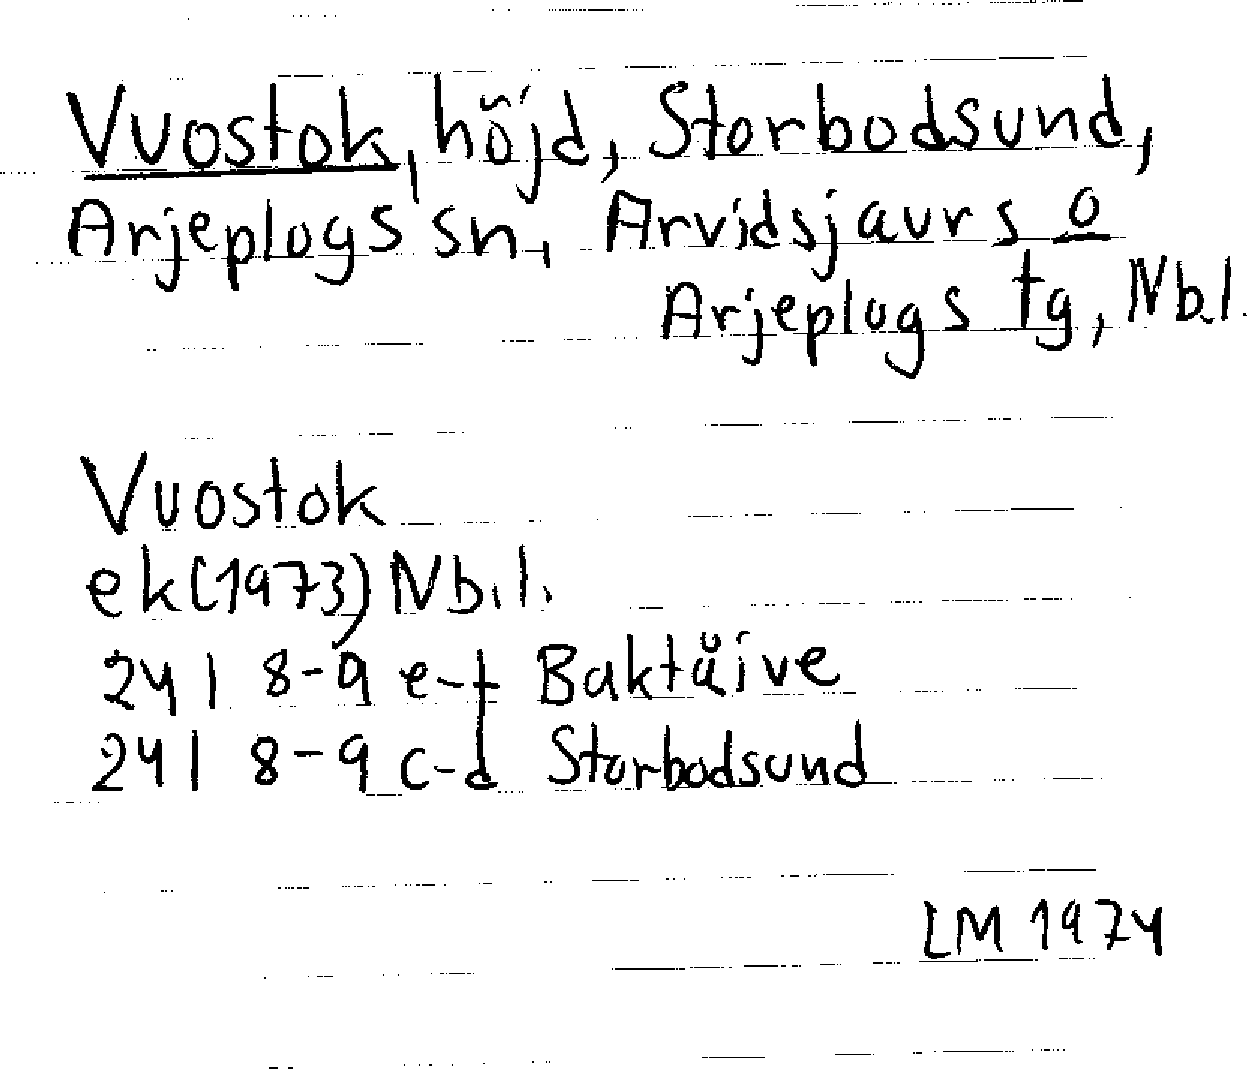 Vuostok, höjd, Storbodsund,
Arjeplogs sn, Arvidsjaurs o
Arjeplogs tg, Nb.l.
Vuostok
ek (1973) Nb.l.
24 I 8-9 e-f Baktåive
24 I 8-9 c-d Storbodsund
LM 1974